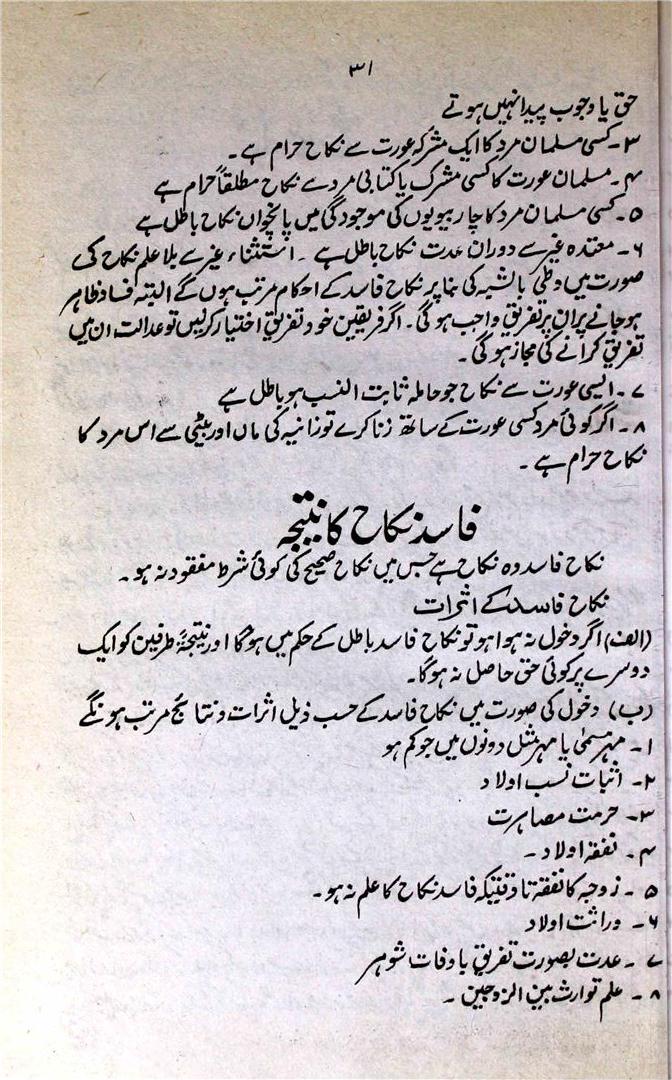 ۳۱
حق یا وجوب پیدا نہیں ہوتے
۳۔ کسی مسلمان مرد کا ایک مشرکہ عورت سے نکاح حرام ہے۔
۴۔ مسلمان عورت کا کسی مشرک یا کتابی مرد سے نکاح مطلقاً حرام ہے
۵۔ کسی مسلمان مرد کا چار بیویوں کی موجودگی میں پانچواں نکاح باطل ہے
۶۔ معتدہ غیر سے دوران عدت نکاح باطل ہے۔ استثناء غیر سے بلا علم نکاح کی
صورت میں وطی بالشبہ کی بنا پر نکاح فاسد کے احکام مرتب ہوں گے البتہ فساد ظاہر
ہو جانے پر ان پر تفریق واجب ہو گی۔ اگر فریقین خود تفریق اختیار کر لیں تو عدالت ان میں
تفریق کرانے کی مجاز ہو گی۔
۷۔ ایسی عورت سے نکاح جو حاملہ ثابت النسب ہو باطل ہے
۸۔ اگر کوئی مرد کسی عورت کے ساتھ زنا کرے تو زانیہ کی ماں اور بیٹی سے اس مرد کا
نکاح حرام ہے۔
فاسد نکاح کا نتیجہ
نکاح فاسد وہ نکاح ہے جس میں نکاح صحیح کی کوئی شرط مفقود نہ ہو۔
نکاح فاسد کے اثرات
(الف) اگر دخول نہ ہوا ہو تو نکاح فاسد باطل کے حکم میں ہوگا اور نتیجۃً طرفین کو ایک
دوسرے پر کوئی حق حاصل نہ ہوگا۔
(ب) دخول کی صورت میں نکاح فاسد کے حسب ذیل اثرات و نتائج مرتب ہونگے
۱۔ مہر مسمیٰ یا مہر مثل دونوں میں جو کم ہو
۲۔ اثبات نسب اولاد
۳۔ حرمت مصاہرت
۴۔ نفقہ اولاد۔
۵۔ زوجہ کا نفقہ تا وقتیکہ فاسد نکاح کا علم نہ ہو۔
۶۔ وراثت اولاد
۷۔ عدت بصورت تفریق یا وفات شوہر
۸۔ علم توارث بین الزوجین۔